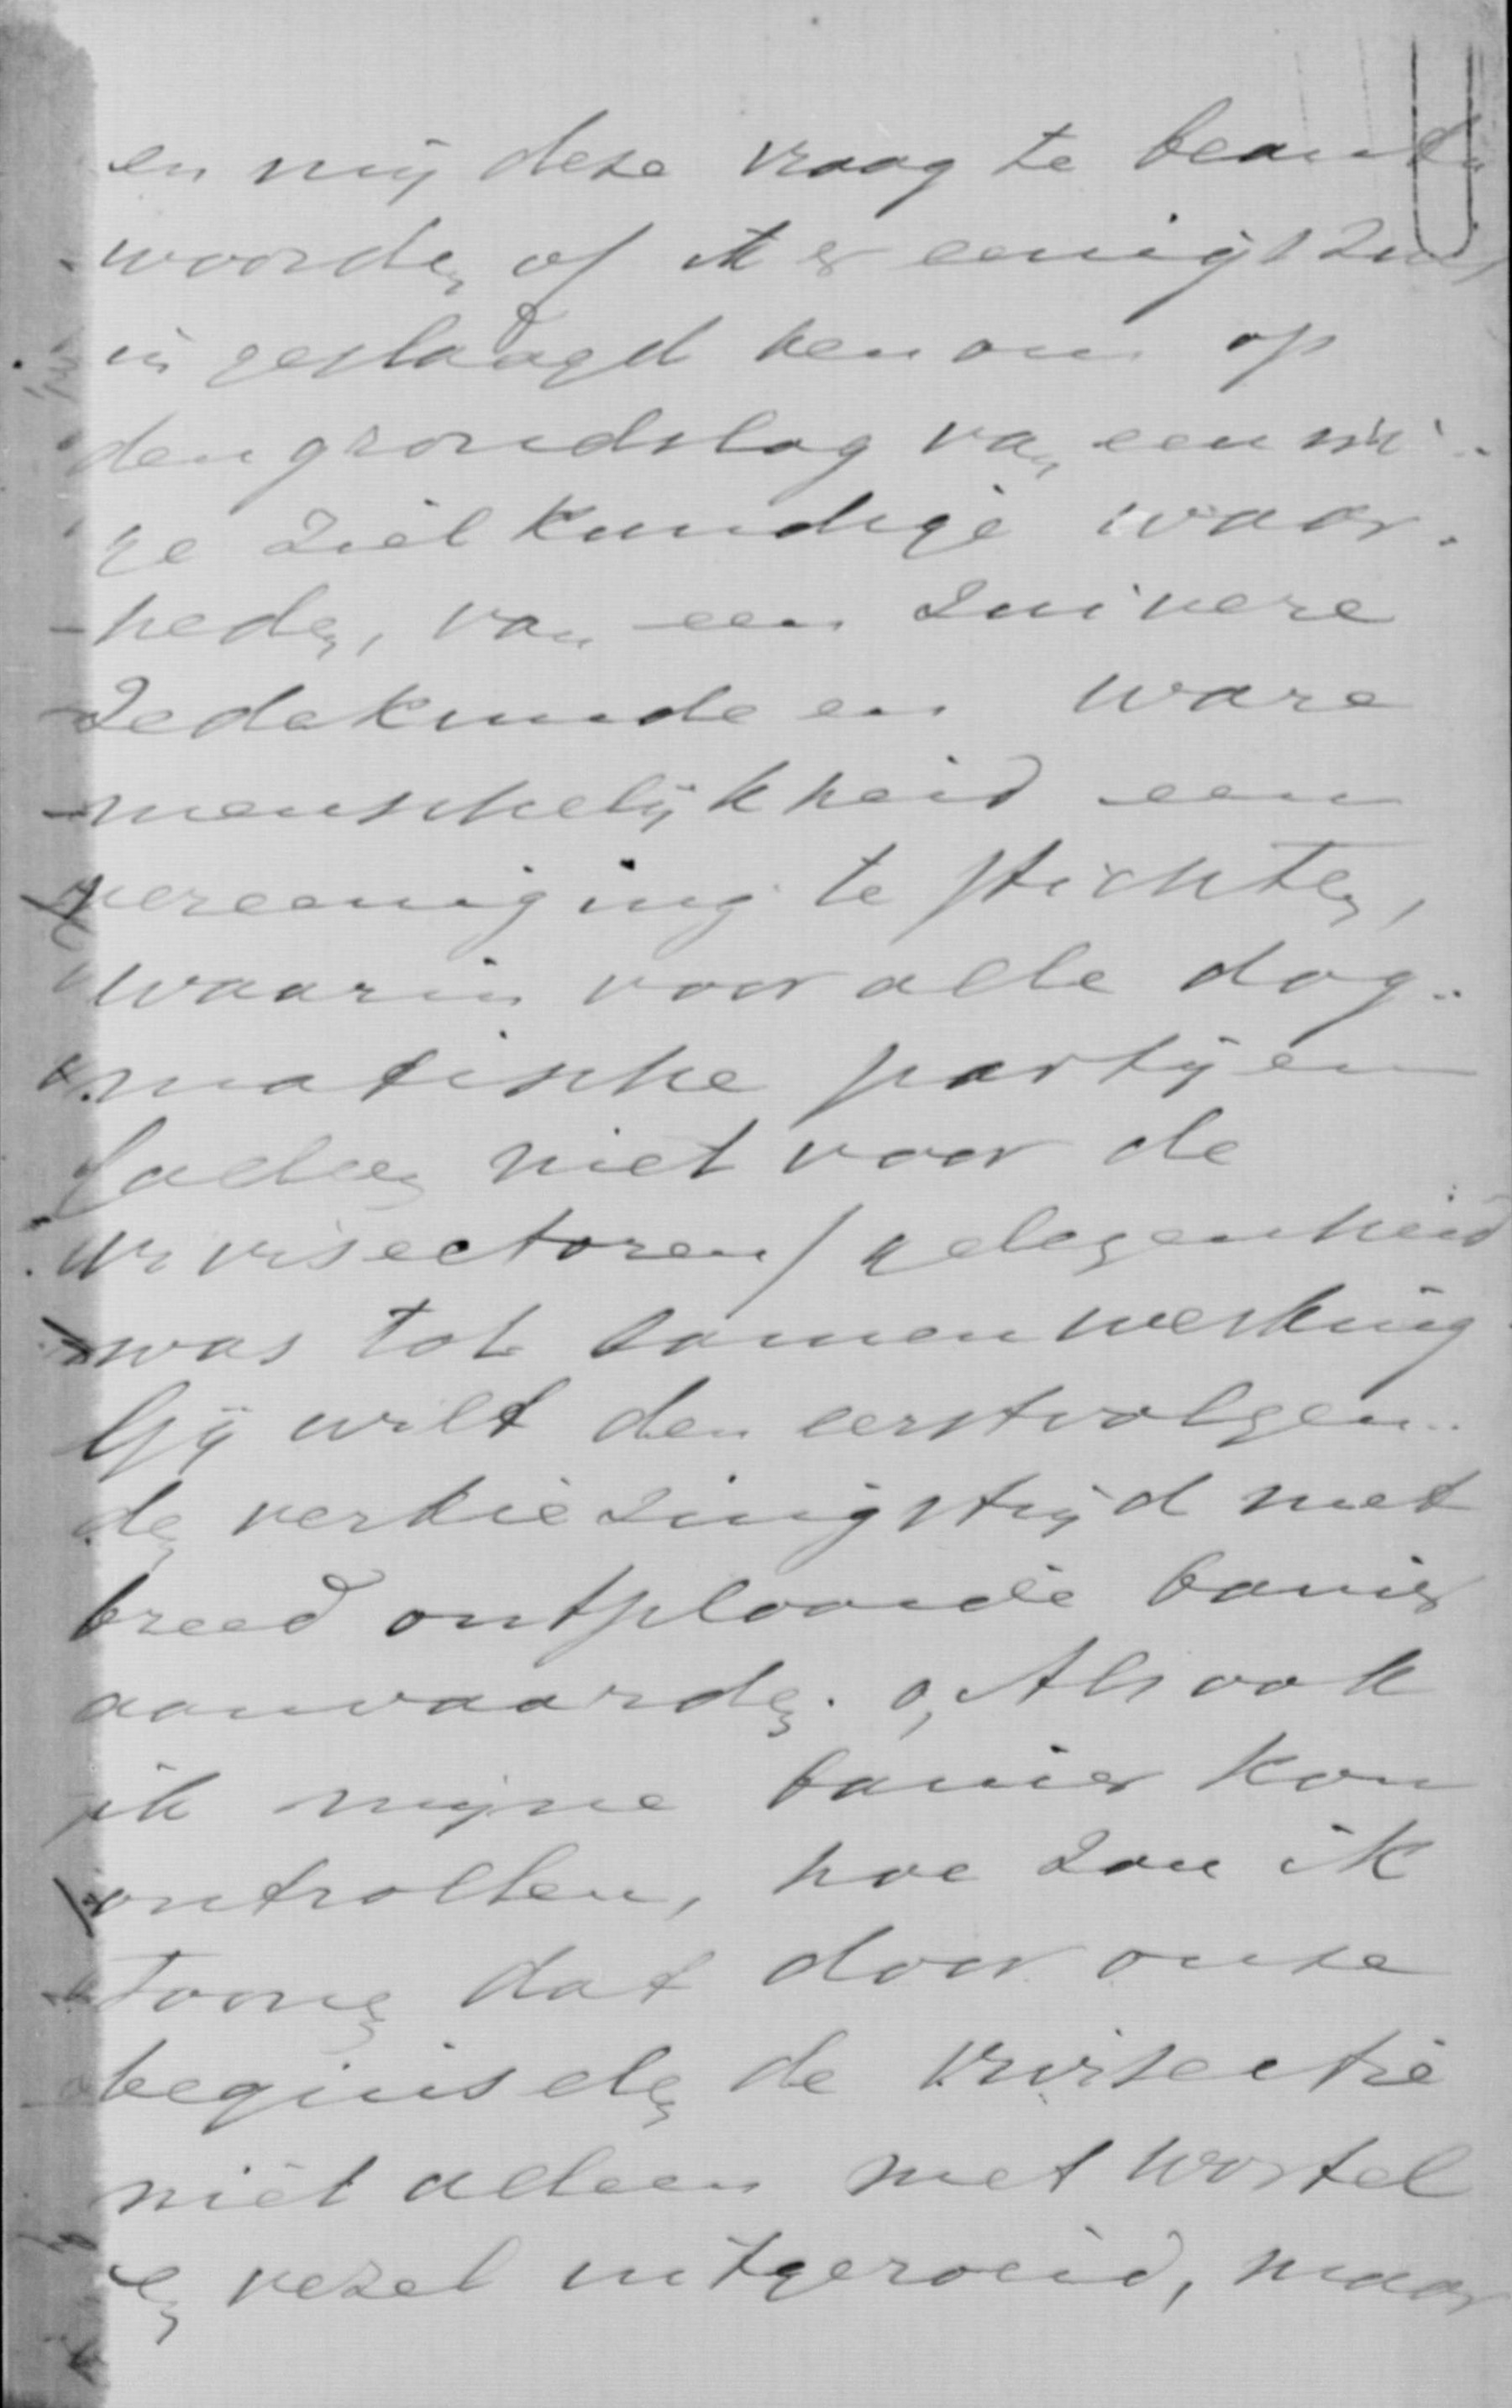 en mij deze vraag te beant-
woorden of ik er eenigszins
in geslaagd ben om op
den grondslag van eenni-
ge zielkundige waar-
heden, van een zuivere
Zedekunde en ware
menschelijkheid een
vereeniging te stichten,
waarin voor alle dog-
matische partijen
(alleen niet voor de
vivisectoren) gelegenheid
was tot samenwerking
Gij wilt den eerstvolgen-
den verkiezingstijd met
breed ontplooide banier
aanvaarden. O, Als ook
ik mijne banier kon
ontrollen, hoe zou ik
toonen dat door onze
beginselen de vivisectie
niet alleen met wortel
en vezel uitgeroeid, maar